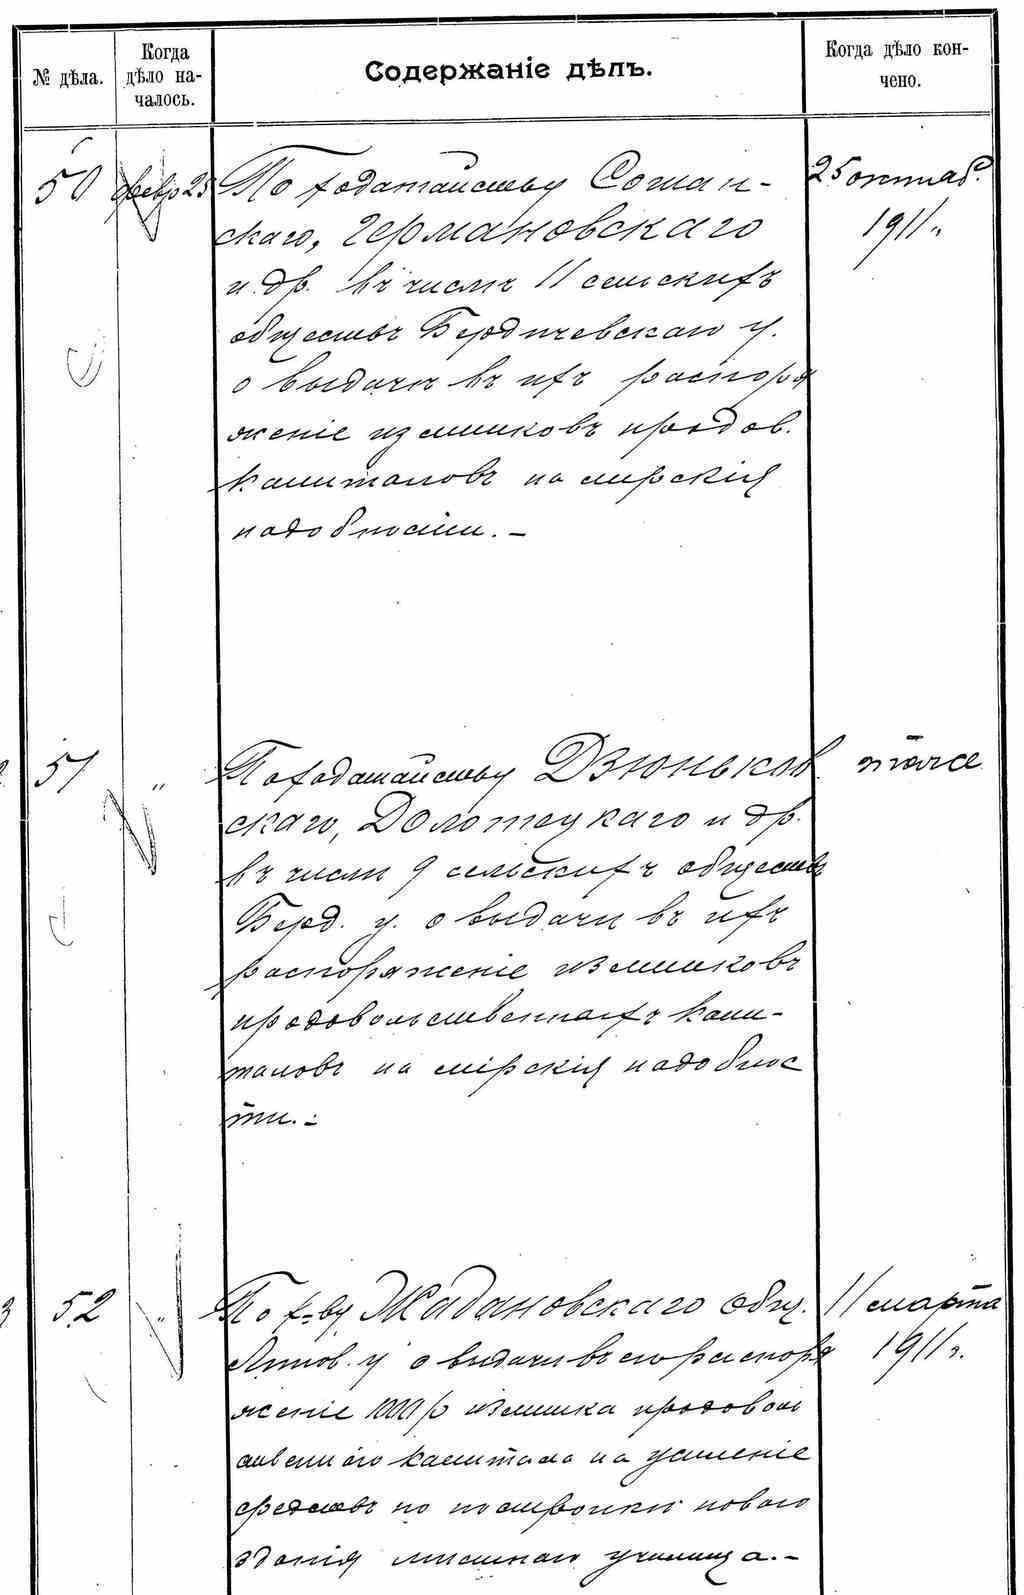 № дѣла.
Когда дѣло на-
чалось.
Содержаніе дѣлъ.
Когда дѣло кон-
чено.
50 февр 25 По ходатайству Сошан-
скаго, Германовскаго
и др. въ числѣ 11 сельскихъ
обществъ Бердичевскаго у.
о выдачѣ въ ихъ распоря
женіе излишковъ продов.
капиталовъ на мирскія
надобности. –
25 октяб.
1911 г.
51 " По ходатайству Дзюньков
скаго, Долотецкаго и др.
въ числѣ 9 сельскихъ обществъ
Берд. у. о выдачѣ въ ихъ
распоряженіе излишковъ
продовольственныхъ капи-
таловъ на мірскія надобнос
ти. –
тоже
52 " По х-ву Жадановскаго общ.
Липов. у. о выдачѣ въ его распоря
женіе 1000 р излишка продоволь
ственнаго капитала на усиленіе
средствъ по постройкѣ новаго
зданія мѣстнаго училища. –
11 марта
1911 г.